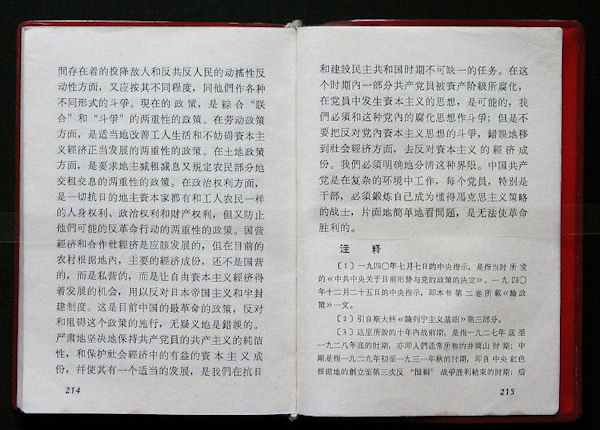 間存在着的投降敌人和反共反人民的动搖性反
动性方面，又应按其不同程度，同他們作各种
不同形式的斗爭。現在的政策，是綜合“联
合”和“斗爭”的两重性的政策。在劳动政策
方面，是适当地改善工人生活和不妨碍資本主
义經济正当发展的两重性的政策。在土地政策
方面，是要求地主减租减息又規定农民部分地
交租交息的两重性的政策。在政治权利方面，
是一切抗日的地主資本家都有和工人农民一样
的人身权利、政治权利和財产权利，但又防止
他們可能的反革命行动的两重性的政策。国营
經济和合作社經济是应該发展的，但在目前的
农村根据地內，主要的經济成份，还不是国营
的，而是私营的，而是让自由資本主义經济得
着发展的机会，用以反对日本帝国主义和半封
建制度。这是目前中国的最革命的政策，反对
和阻碍这个政策的施行，无疑义地是錯誤的。
严肃地坚决地保持共产党員的共产主义的純洁
性，和保护社会經济中的有益的資本主义成
份，并使其有一个适当的发展，是我們在抗日
214
和建設民主共和国时期不可缺一的任务。在这
个时期內一部分共产党員被資产阶級所腐化，
在党員中发生資本主义的思想，是可能的，我
們必須和这种党內的腐化思想作斗爭；但是不
要把反对党內資本主义思想的斗爭，錯誤地移
到社会經济方面，去反对資本主义的經济成
份。我們必須明确地分清这种界限。中国共产
党是在复杂的环境中工作，每个党員，特別是
干部，必須鍛炼自己成为懂得馬克思主义策略
的战士，片面地簡单地看問題，是无法使革命
胜利的。
注 释
〔1〕一九四〇年七月七日的中央指示，是指当时所发
的《中共中央关于目前形势与党的政策的决定》。一九四〇
年十二月二十五日的中央指示，即本书第二卷所載《論政
策》一文。
〔2〕引自斯大林《論列宁主义基础》第三部分。
〔3〕这里所說的十年內战前期，是指一九二七年底至
一九二八年底的时期，亦即人們通常所称的井岡山时期；中
期是指一九二九年初至一九三一年秋的时期，即自中央紅色
根据地的創立至第三次反“围剿”战爭胜利結束的时期；后
215